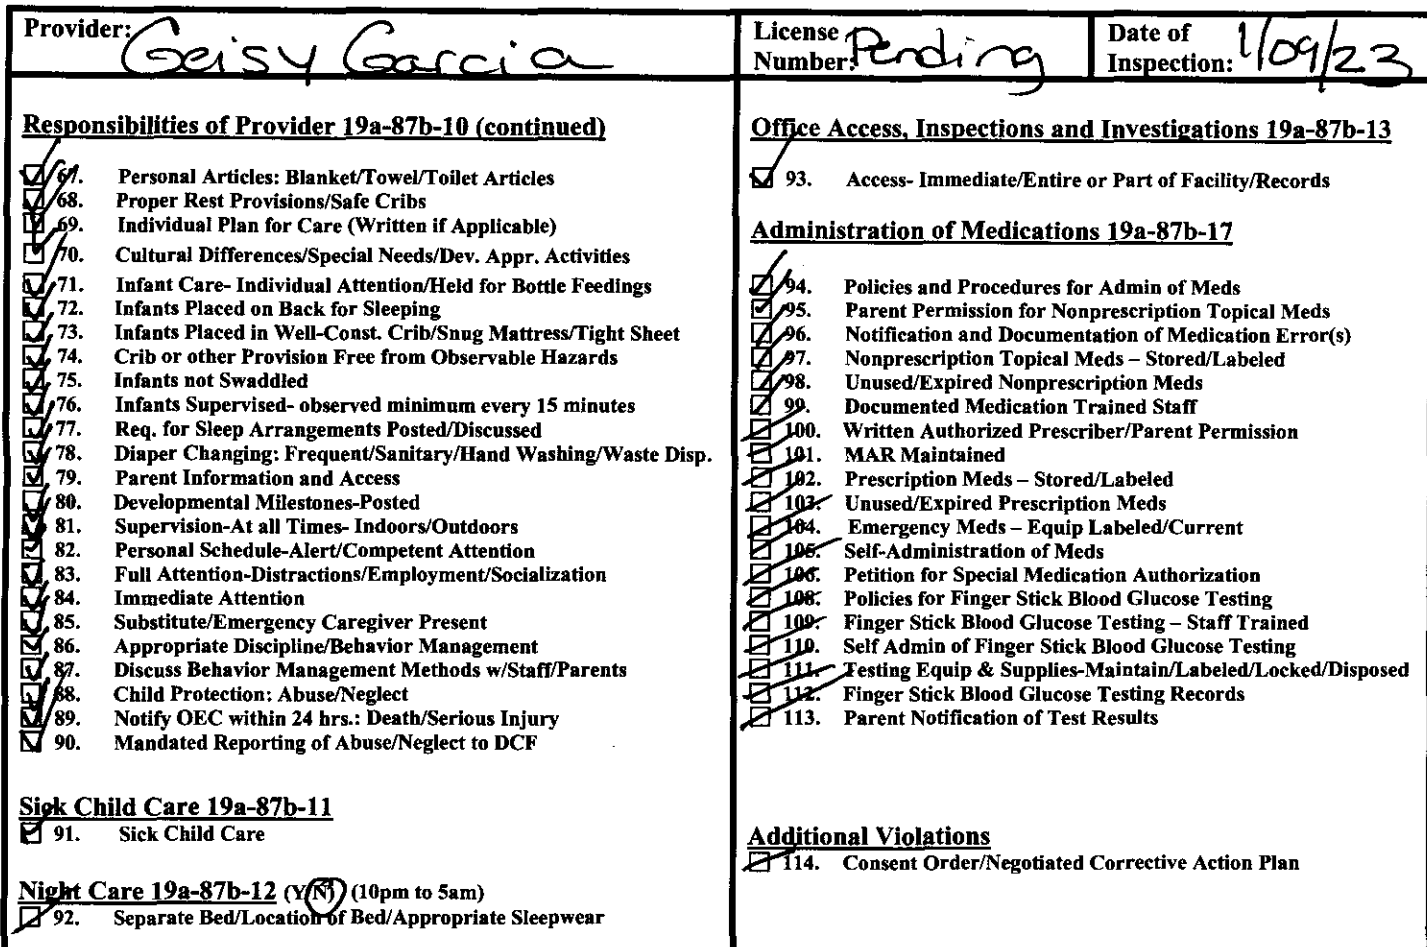 Provider: Geisy Garcia
License Number: Pending
Date of Inspection: 1/09/23
Responsibilities of Provider 19a-87b-10 (continued)
67. Personal Articles: Blanket/Towel/Toilet Articles
68. Proper Rest Provisions/Safe Cribs
69. Individual Plan for Care (Written if Applicable)
70. Cultural Differences/Special Needs/Dev. Appr. Activities
71. Infant Care- Individual Attention/Held for Bottle Feedings
72. Infants Placed on Back for Sleeping
73. Infants Placed in Well-Const. Crib/Snug Mattress/Tight Sheet
74. Crib or other Provision Free from Observable Hazards
75. Infants not Swaddled
76. Infants Supervised- observed minimum every 15 minutes
77. Req. for Sleep Arrangements Posted/Discussed
78. Diaper Changing: Frequent/Sanitary/Hand Washing/Waste Disp.
79. Parent Information and Access
80. Developmental Milestones-Posted
81. Supervision-At all Times- Indoors/Outdoors
82. Personal Schedule-Alert/Competent Attention
83. Full Attention-Distractions/Employment/Socialization
84. Immediate Attention
85. Substitute/Emergency Caregiver Present
86. Appropriate Discipline/Behavior Management
87. Discuss Behavior Management Methods w/Staff/Parents
88. Child Protection: Abuse/Neglect
89. Notify OEC within 24 hrs.: Death/Serious Injury
90. Mandated Reporting of Abuse/Neglect to DCF
Sick Child Care 19a-87b-11
91. Sick Child Care
Night Care 19a-87b-12 (Y/N) (10pm to 5am)
92. Separate Bed/Location of Bed/Appropriate Sleepwear
Office Access, Inspections and Investigations 19a-87b-13
93. Access- Immediate/Entire or Part of Facility/Records
Administration of Medications 19a-87b-17
94. Policies and Procedures for Admin of Meds
95. Parent Permission for Nonprescription Topical Meds
96. Notification and Documentation of Medication Error(s)
97. Nonprescription Topical Meds – Stored/Labeled
98. Unused/Expired Nonprescription Meds
99. Documented Medication Trained Staff
100. Written Authorized Prescriber/Parent Permission
101. MAR Maintained
102. Prescription Meds – Stored/Labeled
103. Unused/Expired Prescription Meds
104. Emergency Meds – Equip Labeled/Current
105. Self-Administration of Meds
106. Petition for Special Medication Authorization
108. Policies for Finger Stick Blood Glucose Testing
109. Finger Stick Blood Glucose Testing – Staff Trained
110. Self Admin of Finger Stick Blood Glucose Testing
111. Testing Equip & Supplies-Maintain/Labeled/Locked/Disposed
112. Finger Stick Blood Glucose Testing Records
113. Parent Notification of Test Results
Additional Violations
114. Consent Order/Negotiated Corrective Action Plan